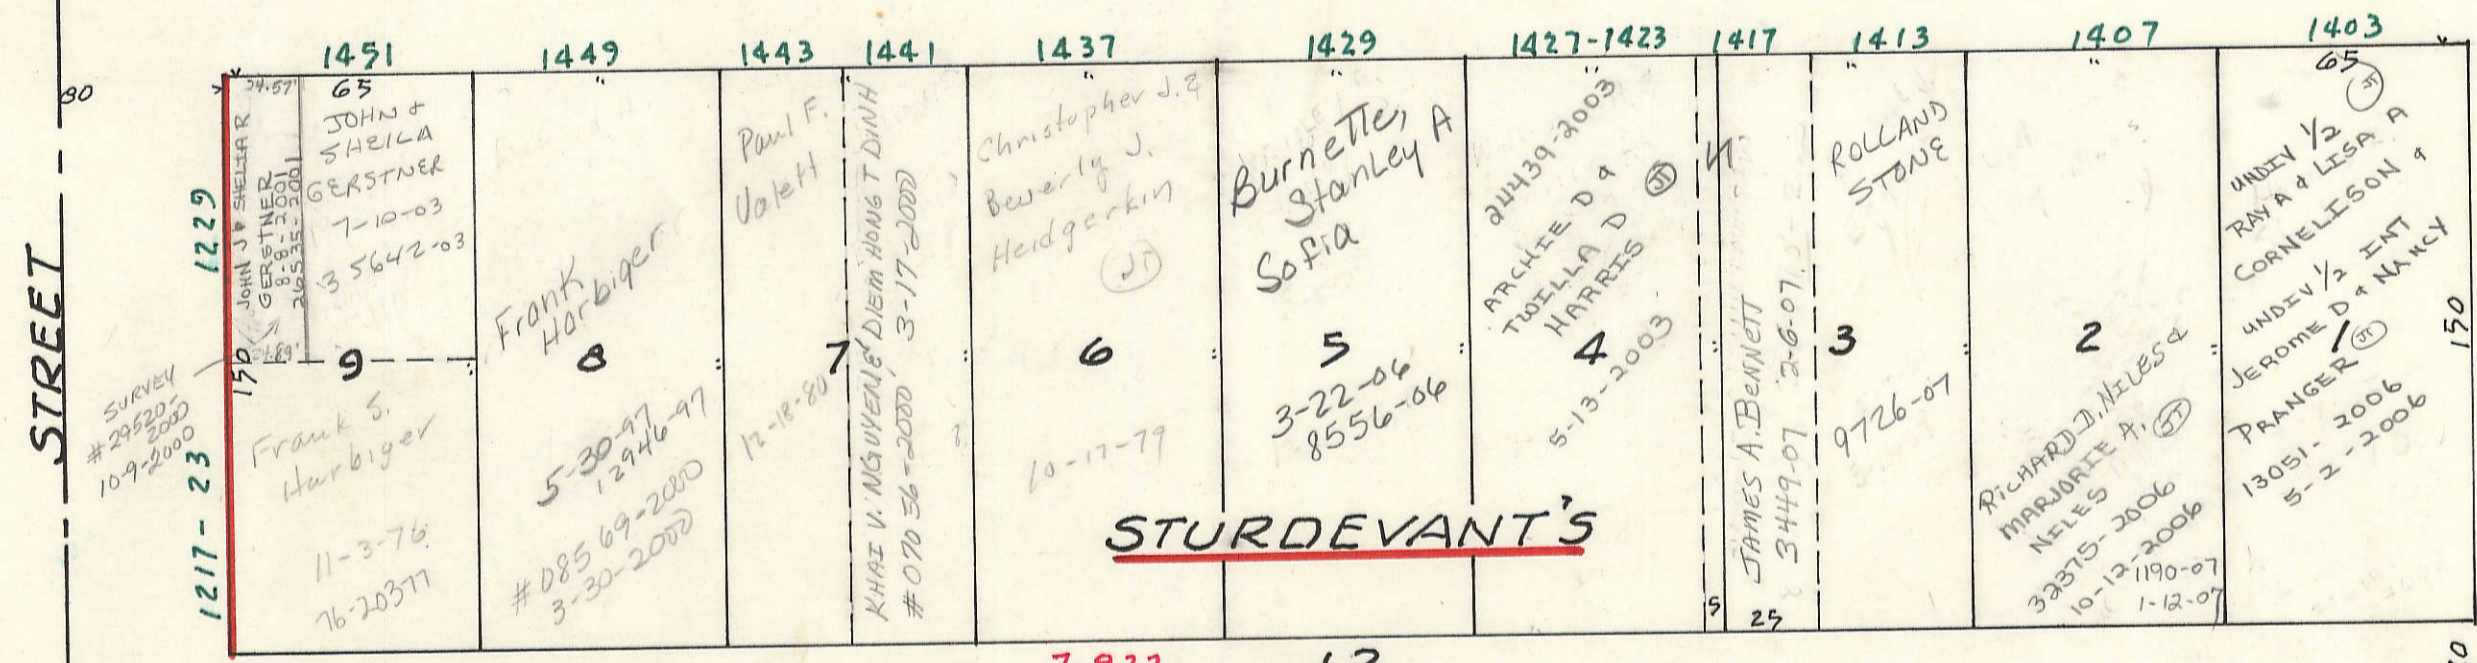 1451
1449
1443
1441
1437
1429
1427-1423
1417
1413
1407
1403
80
STREET
1229
1217-23
150
SURVEY
#29520-
2000
10-9-2000
24.57'
JOHN J & SHELIA R
GERSTNER
8-8-2001
26535-2001
65
JOHN &
SHEILA
GERSTNER
7-10-03
35642-03
9
Frank S.
Harbiger
11-3-76
76-20377
"
Frank
Harbiger
8
5-30-97
12946-97
#08569-2000
3-30-2000
Paul F.
Valett
7
12-18-80
KHAI V. NGUYEN & DIEM HONG T DINH
#07056-2000 3-17-2000
"
Christopher J. &
Beverly J.
Heidgerkin
JT
6
10-17-79
"
Burnette,
Stanley A
Sofia
5
3-22-06
8556-06
"
24439-2003
ARCHIE D &
TWILLA D
HARRIS
JT
4
5-13-2003
5
JAMES A. BENNETT
3449-07 2-6-07
25
"
ROLLAND
STONE
3
9726-07
"
2
RICHARD D. NILES &
MARJORIE A.
NILES
JT
32375-2006
10-12-2006
1190-07
1-12-07
65
JT
UNDIV 1/2
RAY A & LISA A
CORNELISON &
UNDIV 1/2 INT
JEROME D & NANCY
PRANGER
JT
1
13051-2006
5-2-2006
150
STURDEVANT'S
12